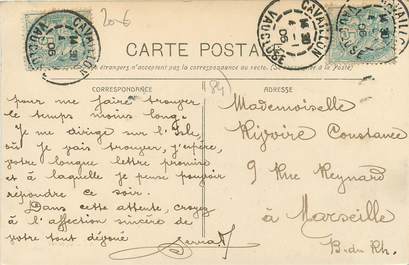 206
CAVAILLON
VAUCLUSE
CAVAILLON
VAUCLUSE
CARTE POSTALE
étrangers n'acceptent pas la correspondance au recto. (Se
à la Poste)
CORRESPONDANCE
ADRESSE
(84)
pour me faire trouver
le temps moins long.
Je me dirige sur l'Isle,
où je vais trouver, j'espère,
votre longue lettre promise
et à laquelle je pense pouvoir
répondre ce soir.
Dans cette attente, croyez
à l'affection sincère de
votre tout dévoué
Mademoiselle
Constance
9 Rue Reynard
à Marseille
B. du Rh.